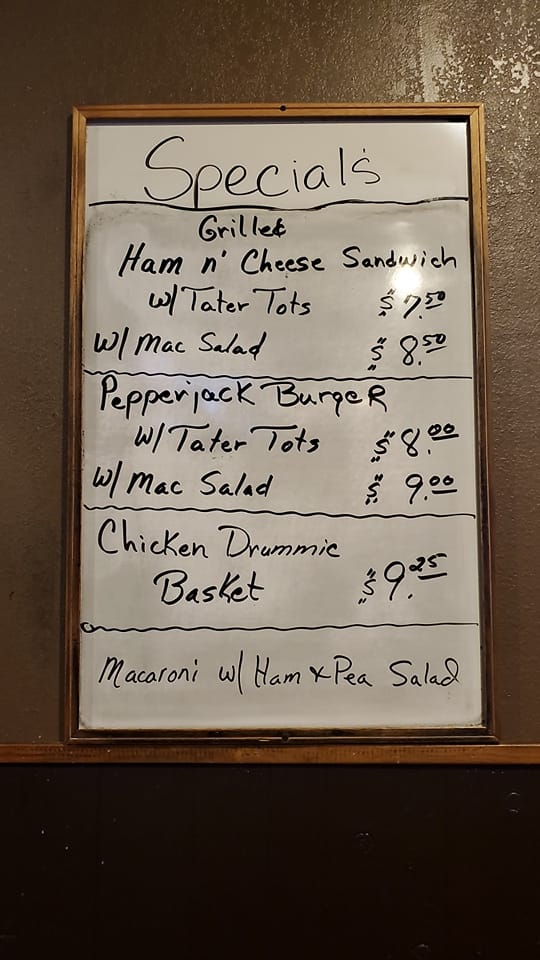 Specials
Grilled
Ham n' Cheese Sandwich
w/ Tater Tots $7.50
w/ Mac Salad $8.50
Pepperjack Burger
w/ Tater Tots $8.00
w/ Mac Salad $9.00
Chicken Drummie
Basket $9.25
Macaroni w/ Ham & Pea Salad